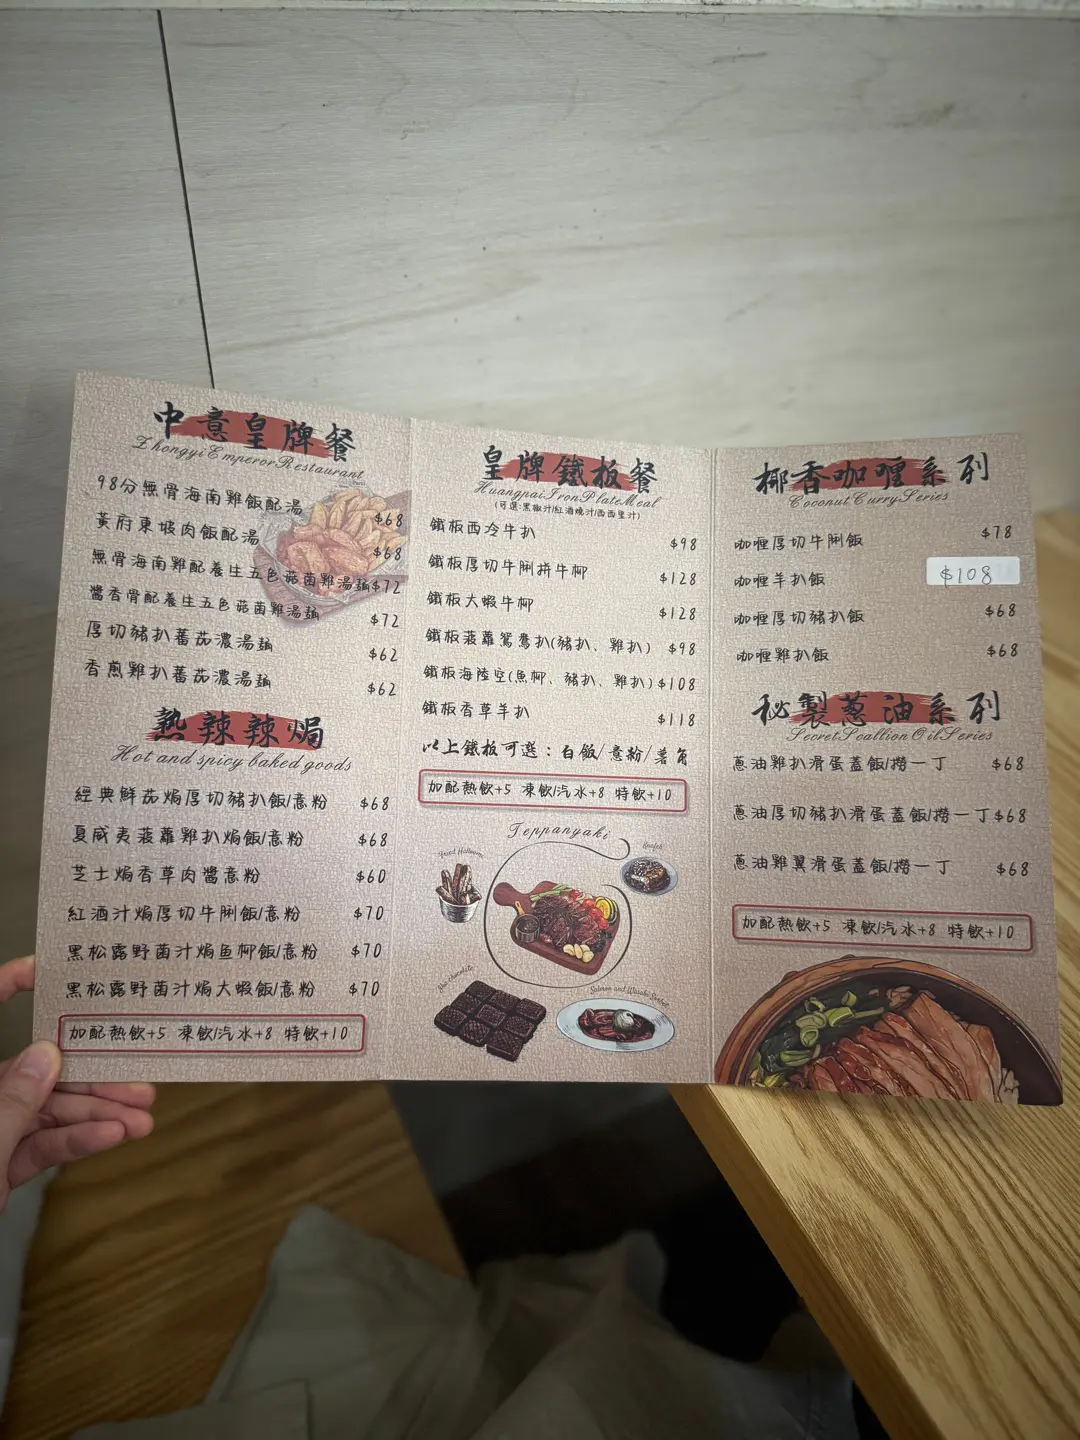 中意皇牌餐
Zhongyi Emperor Restaurant
98分無骨海南雞飯配湯 $68
黃府東坡肉飯配湯 $68
無骨海南雞配養生五色菇菌雞湯麵 $72
醬香骨配養生五色菇菌雞湯麵 $72
厚切豬扒蕃茄濃湯麵 $62
香煎雞扒蕃茄濃湯麵 $62
熱辣辣焗
Hot and spicy baked goods
經典鮮茄焗厚切豬扒飯/意粉 $68
夏威夷菠蘿雞扒焗飯/意粉 $68
芝士焗香草肉醬意粉 $60
紅酒汁焗厚切牛脷飯/意粉 $70
黑松露野菌汁焗魚柳飯/意粉 $70
黑松露野菌汁焗大蝦飯/意粉 $70
加配熱飲+5 凍飲/汽水+8 特飲+10
皇牌鐵板餐
Huangpai Iron Plate Meal
(可選:黑椒汁/紅酒燒汁/西西里汁)
鐵板西冷牛扒 $98
鐵板厚切牛脷拼牛柳 $128
鐵板大蝦牛柳 $128
鐵板菠蘿鴛鴦扒(豬扒、雞扒) $98
鐵板海陸空(魚柳、豬扒、雞扒) $108
鐵板香草羊扒 $118
以上鐵板可選：白飯/意粉/薯角
加配熱飲+5 凍飲/汽水+8 特飲+10
Teppanyaki
Salmon and Wasabi Sorbet
椰香咖喱系列
Coconut Curry Series
咖喱厚切牛脷飯 $78
咖喱羊扒飯 $108
咖喱厚切豬扒飯 $68
咖喱雞扒飯 $68
秘製蔥油系列
Secret Scallion Oil Series
蔥油雞扒滑蛋蓋飯/撈一丁 $68
蔥油厚切豬扒滑蛋蓋飯/撈一丁 $68
蔥油雞翼滑蛋蓋飯/撈一丁 $68
加配熱飲+5 凍飲/汽水+8 特飲+10